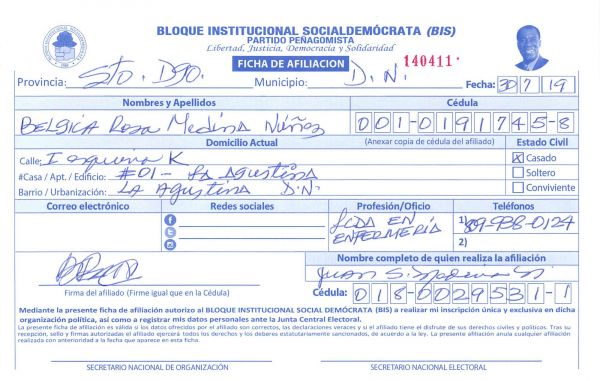 BLOQUE INSTITUCIONAL SOCIALDEMÓCRATA (BIS)
PARTIDO PEÑAGOMISTA
Libertad, Justicia, Democracia y Solidaridad
FICHA DE AFILIACION 140411
Provincia: Sto. Dgo. Municipio: D.N. Fecha: 30 7 19
Nombres y Apellidos Cédula
BELGICA Rosa Medina Núñez 001-0191745-8
Domicilio Actual (Anexar copia de cédula del afiliado) Estado Civil
Calle: I esquina K X Casado
#Casa / Apt. / Edificio: #01 - La Agustina Soltero
Barrio / Urbanización: LA Agustina D.N. Conviviente
Correo electrónico Redes sociales Profesión/Oficio Teléfonos
LCDA EN ENFERMERÍA 1) 809-938-0124
2)
Nombre completo de quien realiza la afiliación
Juan S.
Firma del afiliado (Firme igual que en la Cédula) Cédula: 018-0029531-1
Mediante la presente ficha de afiliación autorizo al BLOQUE INSTITUCIONAL SOCIAL DEMÓCRATA (BIS) a realizar mi inscripción única y exclusiva en dicha
organización política, así como a registrar mis datos personales ante la Junta Central Electoral.
La presente ficha de afiliación es válida si los datos ofrecidos por el afiliado son correctos, las declaraciones veraces y si el afiliado tiene el disfrute de sus derechos civiles y políticos. Tras su
recepción, sello y firmas autorizadas el afiliado ejercerá todos los derechos y los deberes estatutariamente sancionados, de acuerdo a la ley. La presente afiliación anula cualquier afiliación
realizada con anterioridad a la fecha que aparece en esta ficha.
SECRETARIO NACIONAL DE ORGANIZACIÓN SECRETARIO NACIONAL ELECTORAL